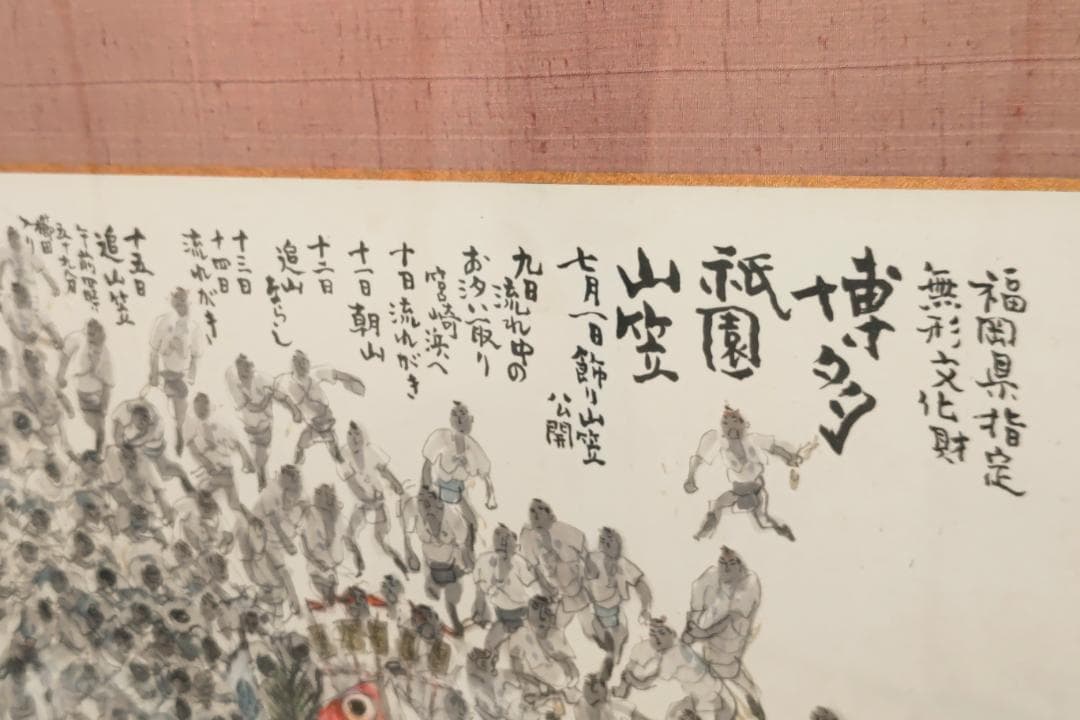 福岡県指定
無形文化財
博多
祇園
山笠
七月一日飾り山笠
公開
九日
流れ中の
お汐い取り
筥崎浜へ
十日 流れがき
十一日 朝山
十二日
追山ならし
十三日
十四日
流れがき
十五日
追山笠
午前四時
五十九分
櫛田
入り